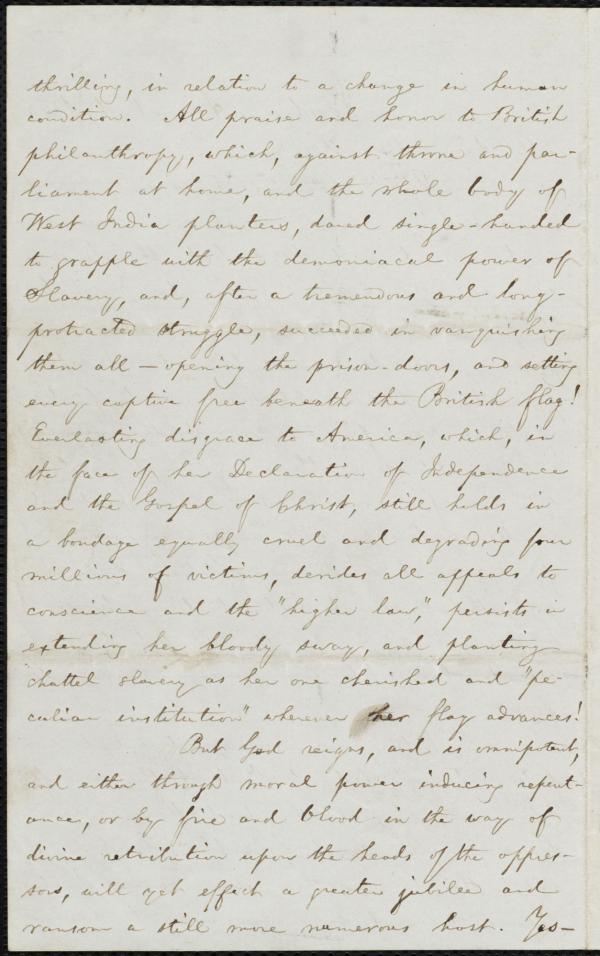 thrilling, in relation to a change in human
condition. All praise and honor to British
philanthropy, which, against throne and par-
liament at home, and the whole body of
West India planters, dared single-handed
to grapple with the demoniacal power of
Slavery, and, after a tremendous and long-
protracted struggle, succeeded in vanquishing
them all — opening the prison-doors, and setting
every captive free beneath the British flag!
Everlasting disgrace to America, which, in
the face of her Declaration of Independence
and the Gospel of Christ, still holds in
a bondage equally cruel and degrading four
millions of victims, derides all appeals to
conscience and the "higher law," persists in
extending her bloody sway, and planting
chattel slavery as her one cherished and "pe-
culiar institution" wherever her flag advances!
But God reigns, and is omnipotent,
and either through moral power inducing repent-
ance, or by fire and blood in the way of
divine retribution upon the heads of the oppres-
sors, will yet effect a greater jubilee and
ransom a still more numerous host. Yes—